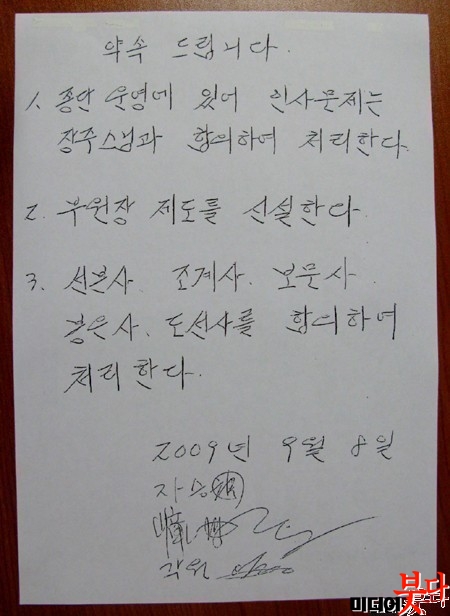 약속 드립니다.
1. 종단 운영에 있어 인사문제는
장주스님과 합의하여 처리한다.
2. 부원장 제도를 신설한다.
3. 선본사. 조계사. 보문사.
봉은사. 도선사를 합의하여
처리한다.
2009년 9월 8일
자승
각원
미디어붓다